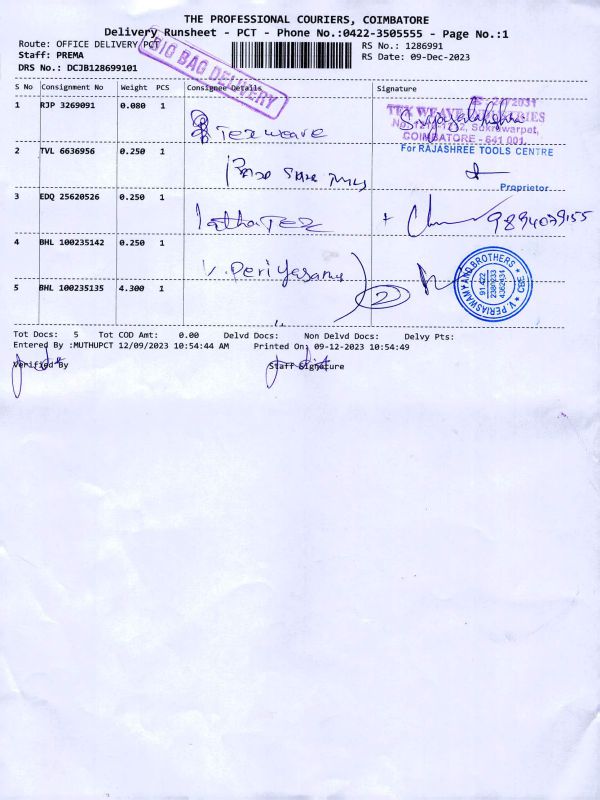 THE PROFESSIONAL COURIERS, COIMBATORE
Delivery Runsheet - PCT - Phone No.:0422-3505555 - Page No.:1
Route: OFFICE DELIVERY PCT
RS No.: 1286991
Staff: PREMA
RS Date: 09-Dec-2023
DRS No.: DCJB128699101
BIG BAG DELIVERY
S No Consignment No Weight PCS Consignee Details Signature
1 RJP 3269091 0.080 1
Tex weave
TEX WEAVE
Sukrawarpet,
COIMBATORE - 641 001.
2 TVL 6636956 0.250 1
For RAJASHREE TOOLS CENTRE
Proprietor
3 EDQ 25620526 0.250 1
latha TEX
4 BHL 100235142 0.250 1
V. Periyasamy
2
V. PERIASWAMY AND BROTHERS
CBE
5 BHL 100235135 4.300 1
Tot Docs: 5 Tot COD Amt: 0.00 Delvd Docs: Non Delvd Docs: Delvy Pts:
Entered By :MUTHUPCT 12/09/2023 10:54:44 AM Printed On: 09-12-2023 10:54:49
Verified By Staff Signature